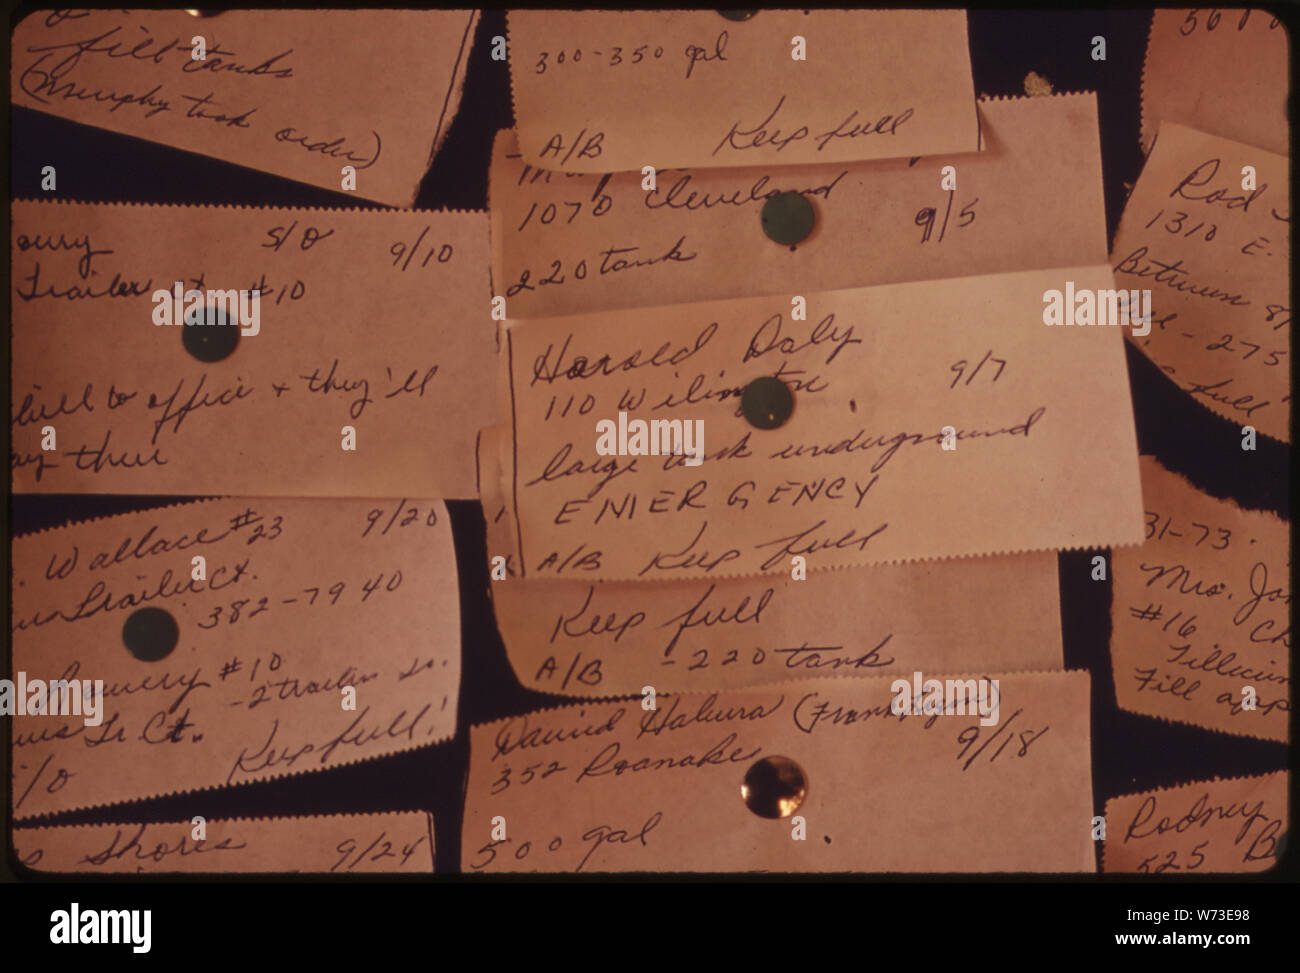 fill tanks
(Murphy took order)
300-350 gal
A/B Keep full
1070 Cleveland
9/5
220 tank
S/O 9/10
Trailer Ct #10
bill to office + they'll
pay there
Harold Daly
9/7
110 Wilington
large tank underground
EMERGENCY
A/B Keep full
Keep full
A/B - 220 tank
Wallace #23 9/20
Trailer Ct.
382-7940
Lowery #10
Tr. Ct. - 2 trailers so.
Keep full!
Shores 9/24
David Hakura (Frank Lyon)
352 Roanoke 9/18
500 gal
Rod
1310 E.
Between 8/
- 275
full
31-73.
Mrs.
#16
Tillicum
Fill
Rodney
525 B
alamy
alamy stock photo
W73E98
www.alamy.com